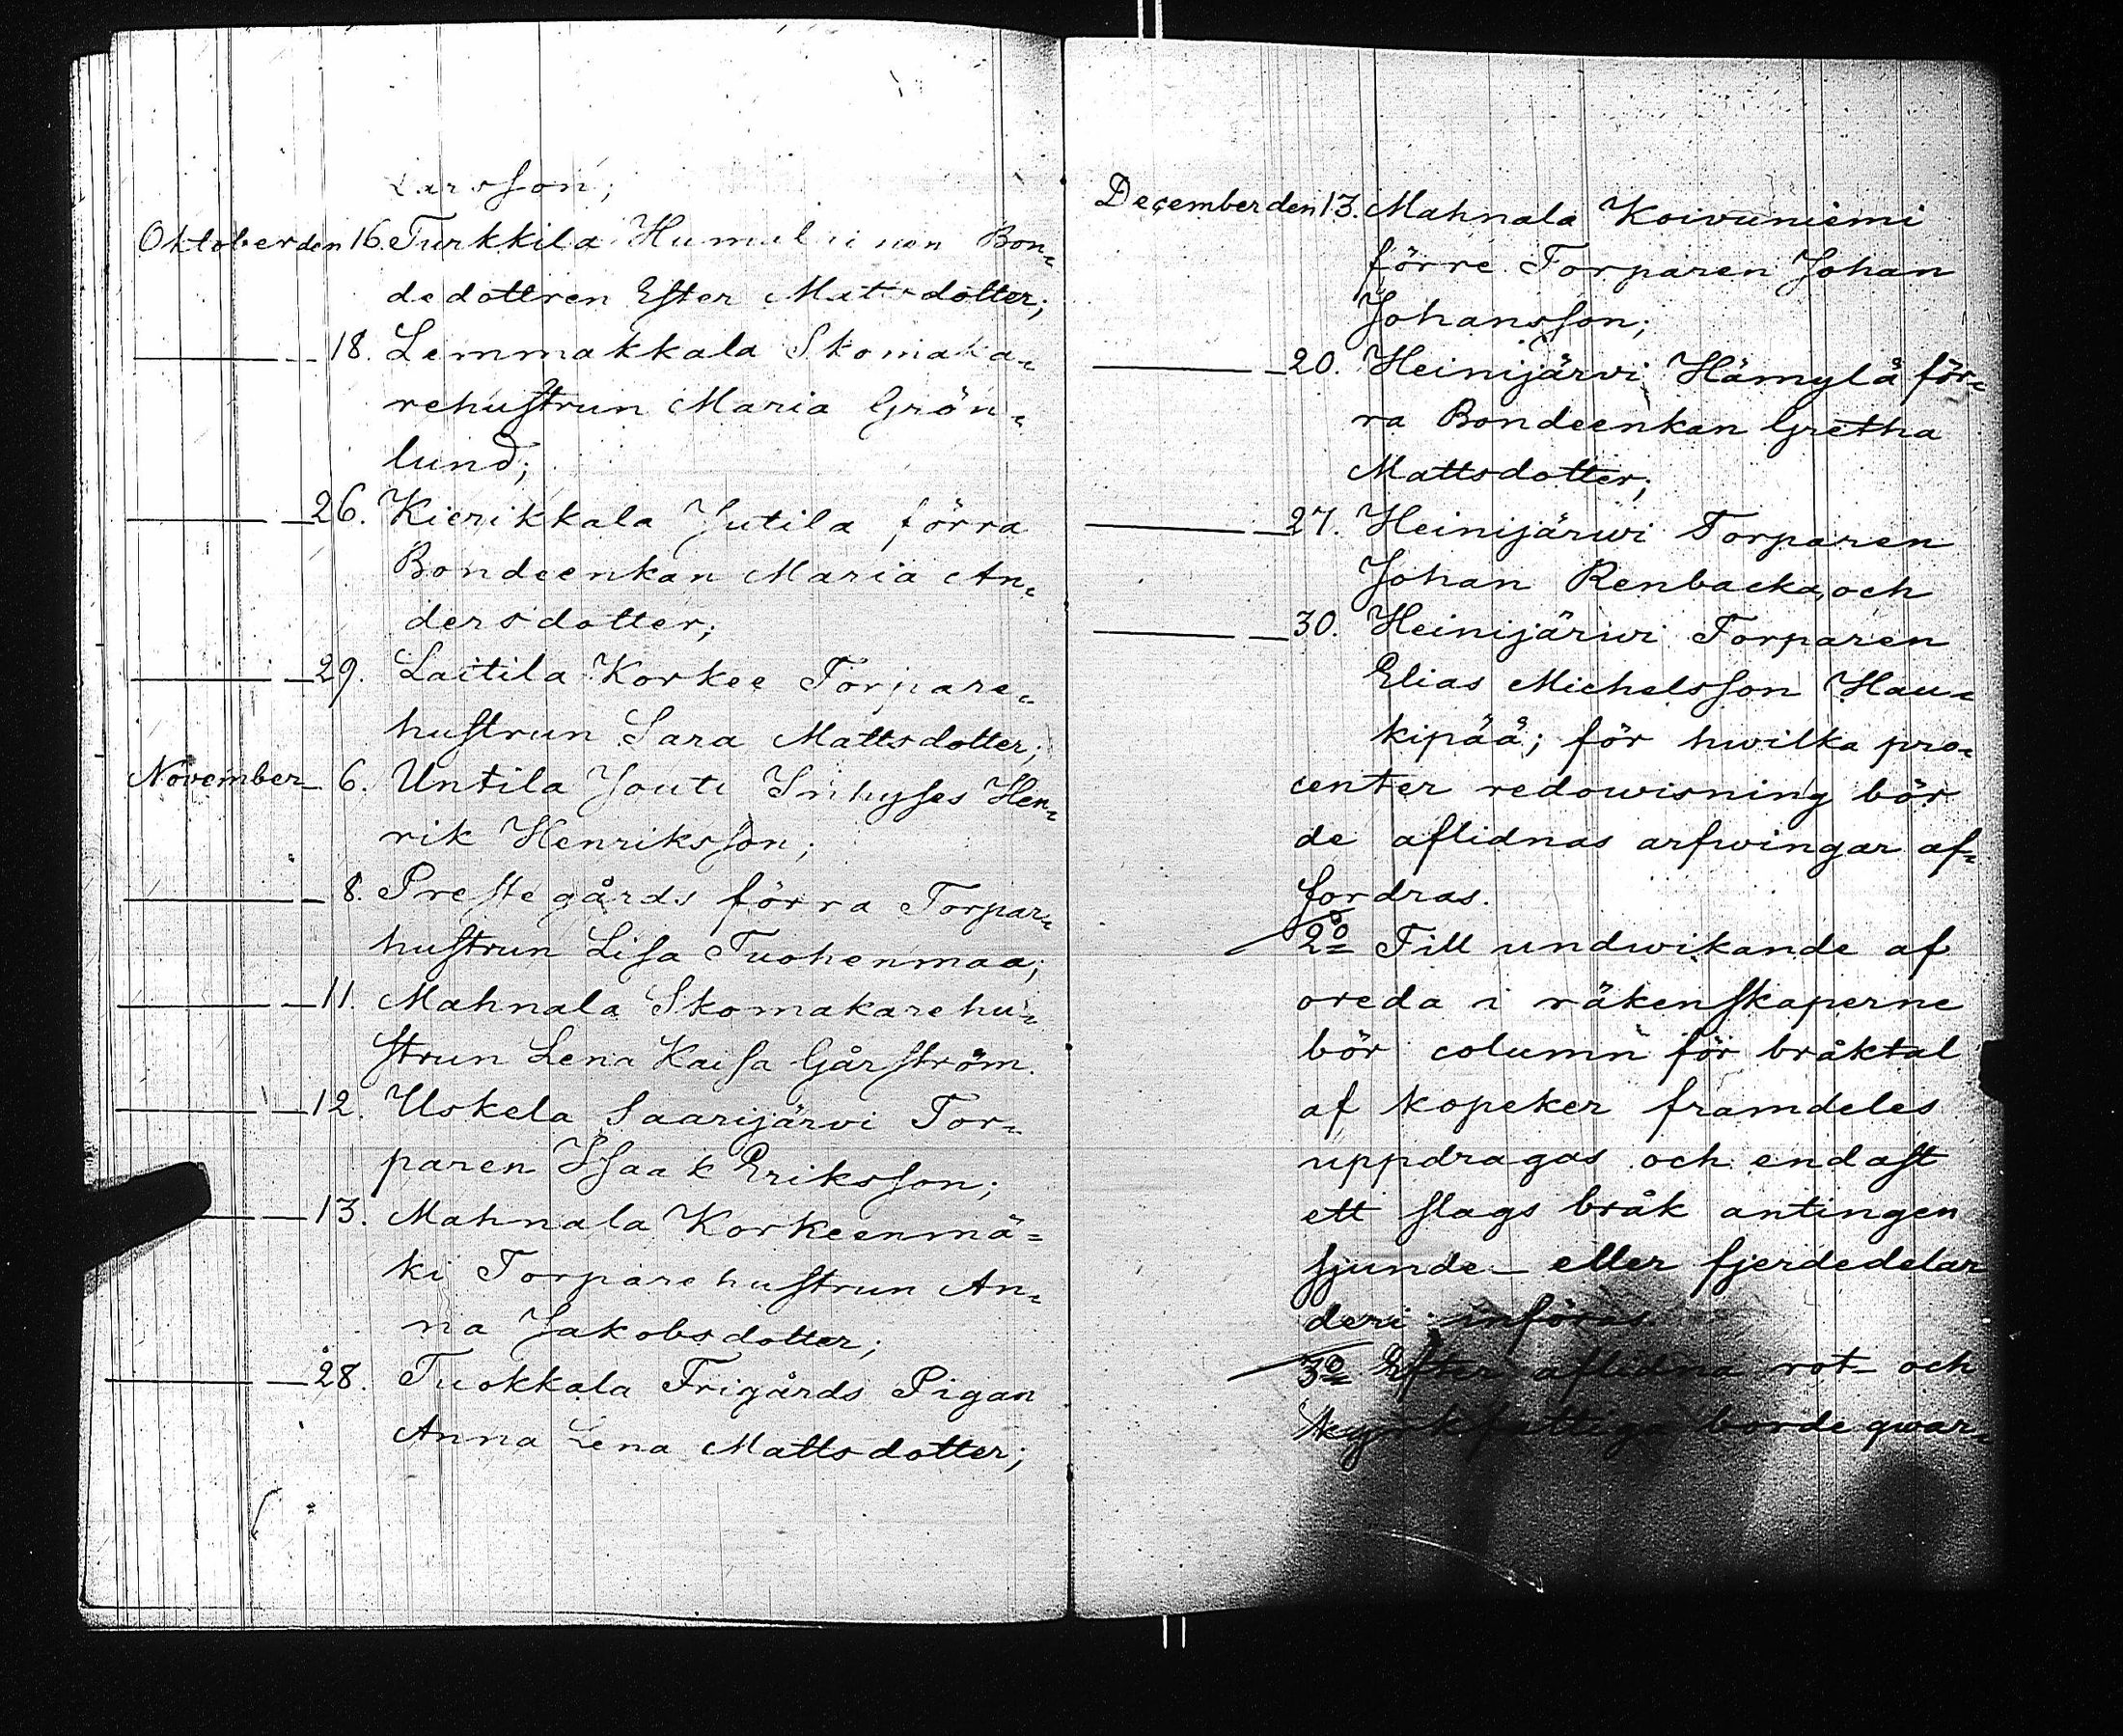 Larsson;
Oktober den 16. Turkkila Humalinen Bon-
dedottren Ester Mattsdotter;
18. Lemmakkala Skomaka-
rehustrun Maria Grön-
lund;
26. Kierikkala Jutila förra
Bondeenkan Maria An-
dersdotter;
29. Laitila Korkee Torpare-
hustrun Sara Mattsdotter;
November 6. Untila Jouti Inhyses Hen-
rik Henriksson;
8. Prestegårds förra Torpar-
hustrun Lisa Tuohenmaa;
11. Mahnala Skomakarehu-
strun Lena Kaisa Gårström.
12. Uskela Saarijärvi Tor-
paren Isaak Eriksson;
13. Mahnala Korkeenmä-
ki Torparehustrun An-
na Jakobsdotter;
28. Tuokkala Frigårds Pigan
Anna Lena Mattsdotter;
December den 13. Mahnala Koivuniemi
förre Torparen Johan
Johansson;
20. Heinijärvi Hämylä för-
ra Bondeenkan Gretha
Mattsdotter;
27. Heinijärwi Torparen
Johan Renbacka, och
30. Heinijärwi Torparen
Elias Michelsson Hau-
kipää; för hwilka pro-
center redowisning bör
de aflidnas arfwingar af-
fordras.
2o Till undwikande af
oreda i räkenskaperne
bör column för bråktal
af kopeker framdeles
uppdragas och endast
ett slags bråk antingen
sjunde- eller fjerdedelar
deri införas.
3o Efter aflidna rot- och
kyrkfattiga borde qwar-